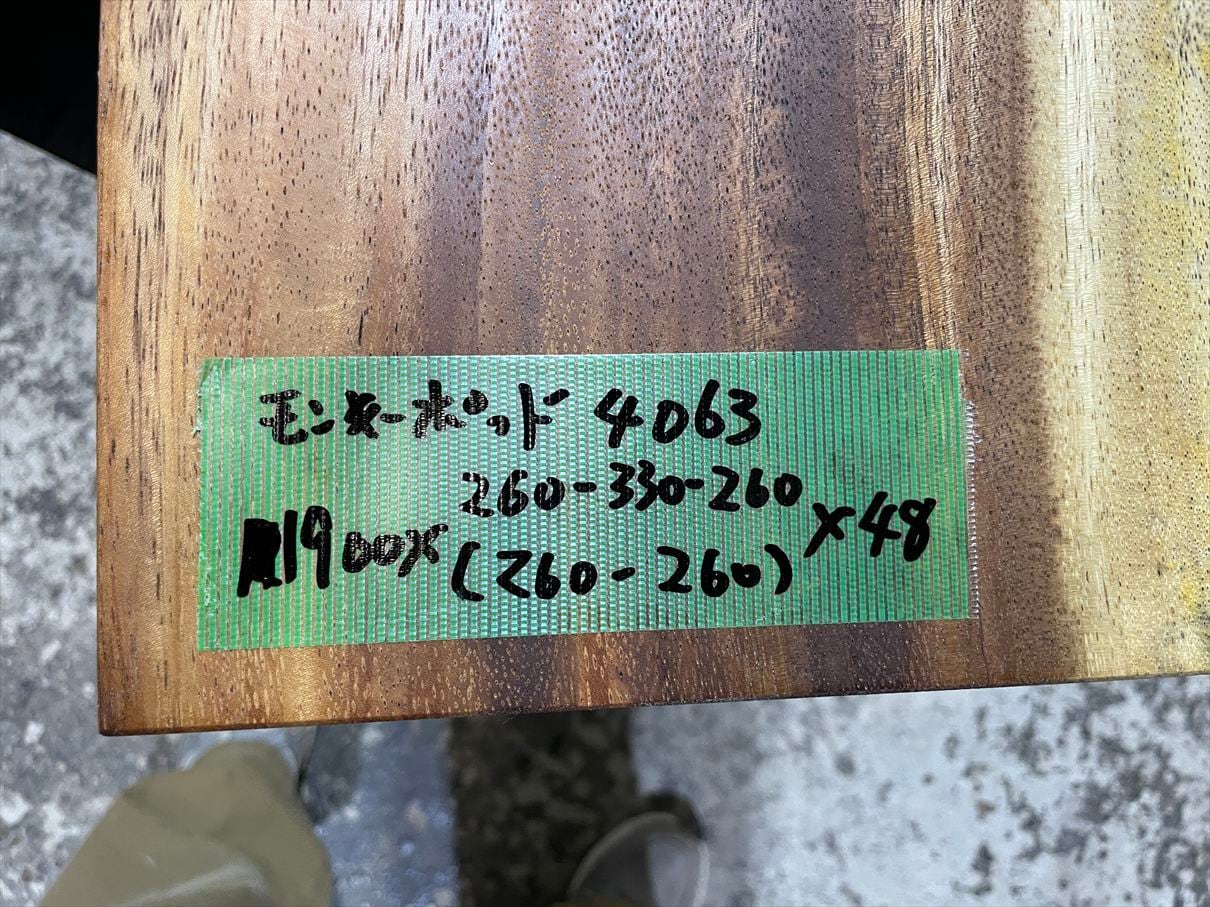 モンキーポッド 4063
260-330-260
1900x (260-260) x48